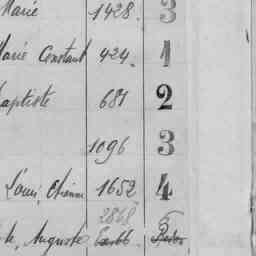 Marie 1428. 3
Marie Constant 424. 1
Baptiste 681 2
1096 3
Louis, Etienne 1652 4
2868 5
Auguste